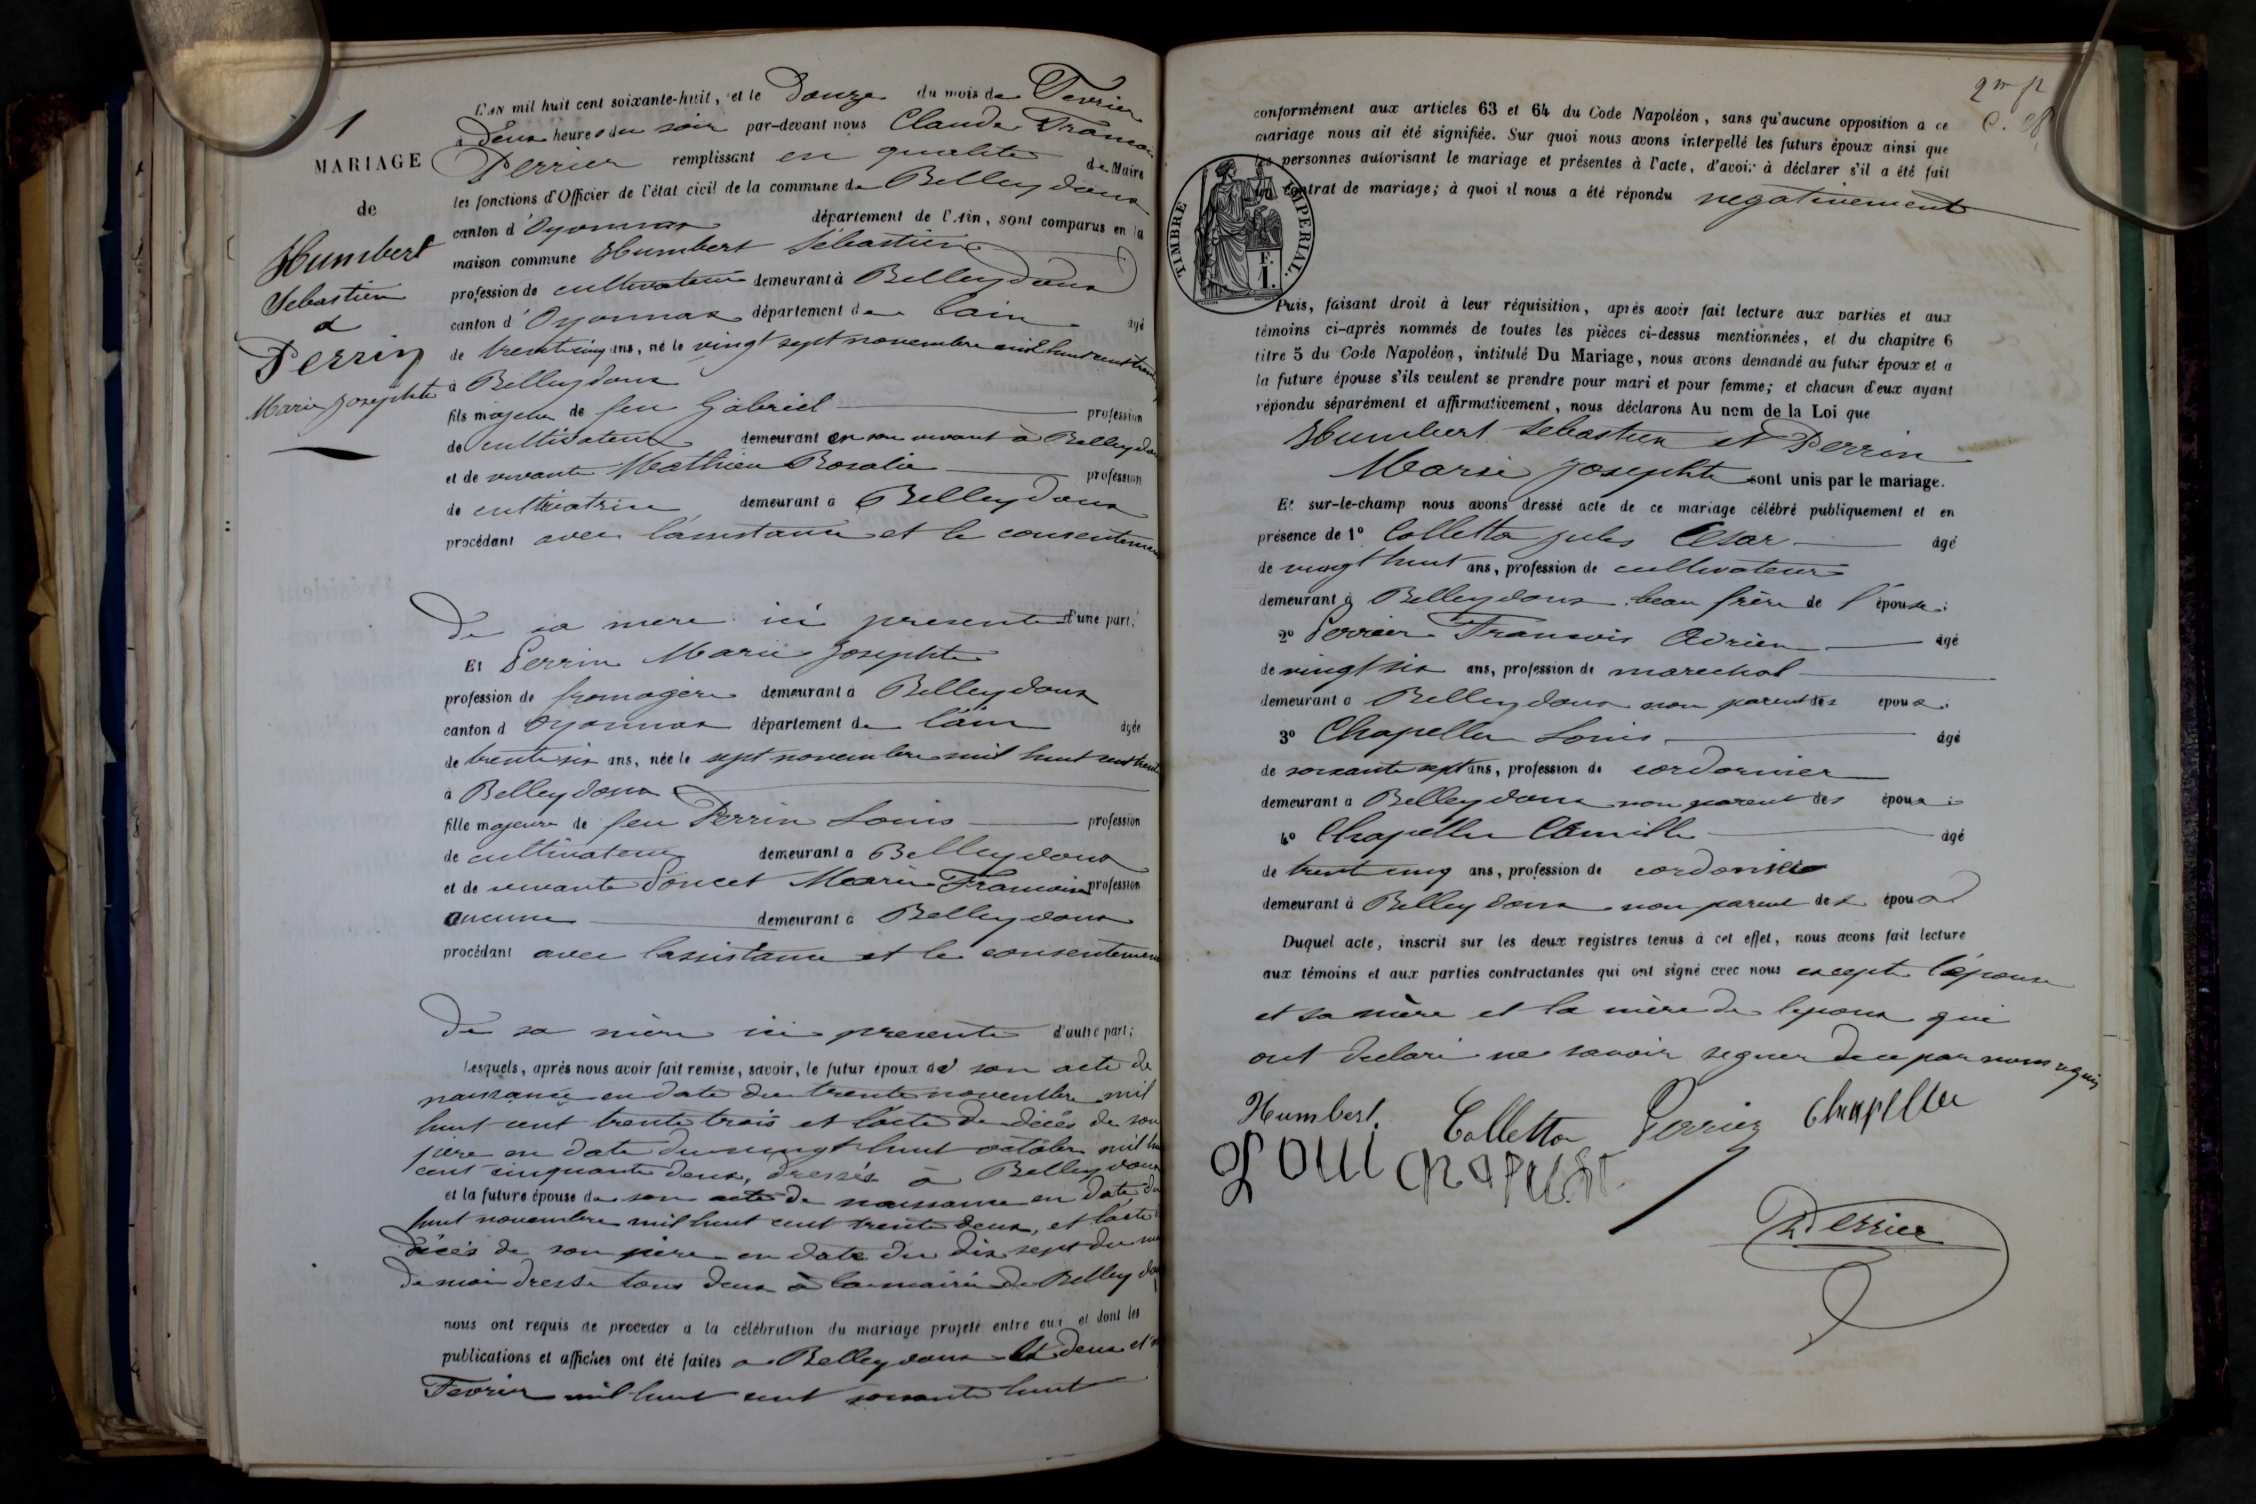 1
MARIAGE
de
Humbert
Sebastien
&
Perrin
Marie Josephte
L'an mil huit cent soixante-huit, et le Douze du mois de Fevrier
à Deux heures du soir par-devant nous Claude Francois
Perrier remplissant en qualité de Maire
les fonctions d'Officier de l'état civil de la commune de Belleydoux
canton d'Oyonnax département de l'Ain, sont comparus en la
maison commune Humbert Sebastien
profession de cultivateur demeurant à Belleydoux
canton d'Oyonnax département de l'ain âgé
de trente cinq ans, né le vingt sept novembre mil huit cent trente
à Belleydoux
fils majeur de feu Gabriel profession
de cultivateur demeurant en son vivant à Belleydoux
et de vivante Mathieu Rosalie profession
de cultivatrice demeurant à Belleydoux
procédant avec l'assistance et le consentement
De sa mere ici presente d'une part;
Et Perrin Marie Josephte
profession de fromagère demeurant à Belleydoux
canton d Oyonnax département de l'ain âgée
de trente six ans, née le sept novembre mil huit cent trente
à Belleydoux
fille majeure de feu Perrin Louis profession
de cultivateur demeurant à Belleydoux
et de vivante Poncet Marie Francoise profession
aucune demeurant à Belleydoux
procédant avec l'assistance et le consentement
De sa mère ici presente d'autre part;
Lesquels, après nous avoir fait remise, savoir, le futur époux de son acte de
naissance en date du trente novembre mil
huit cent trente trois et l'acte de décès de son
père en date du vingt huit octobre mil huit
cent cinquante deux, dressés à Belleydoux
et la future épouse de son acte de naissance en date du
huit novembre mil huit cent trente deux, et l'acte
décès de son père en date du dix sept du
de mai dressé tous deux à la mairie de Belleydoux
nous ont requis de procéder à la célébration du mariage projeté entre eux et dont les
publications et affiches ont été faites à Belleydoux le deux et
Fevrier mil huit cent soixante huit
conformément aux articles 63 et 64 du Code Napoléon, sans qu'aucune opposition à ce
mariage nous ait été signifiée. Sur quoi nous avons interpellé les futurs époux ainsi que
les personnes autorisant le mariage et présentes à l'acte, d'avoir à déclarer s'il a été fait
un contrat de mariage; à quoi il nous a été répondu negativement
TIMBRE IMPERIAL.
F.
1.
Puis, faisant droit à leur réquisition, après avoir fait lecture aux parties et aux
témoins ci-après nommés de toutes les pièces ci-dessus mentionnées, et du chapitre 6
titre 5 du Code Napoléon, intitulé Du Mariage, nous avons demandé au futur époux et à
la future épouse s'ils veulent se prendre pour mari et pour femme; et chacun d'eux ayant
répondu séparément et affirmativement, nous déclarons Au nom de la Loi que
Humbert Sebastien et Perrin
Marie Josephte sont unis par le mariage.
Et sur-le-champ nous avons dressé acte de ce mariage célébré publiquement et en
présence de 1º Colletta Jules Cesar âgé
de vingt huit ans, profession de cultivateur
demeurant à Belleydoux beau frère de l'épouse;
2º Perrier Francois Adrien âgé
de vingt six ans, profession de marechal
demeurant à Belleydoux non parent des époux;
3º Chapellu Louis âgé
de soixante sept ans, profession de cordonnier
demeurant à Belleydoux non parent des époux;
4º Chapellu Camille âgé
de trente cinq ans, profession de cordonnier
demeurant à Belleydoux non parent des époux
Duquel acte, inscrit sur les deux registres tenus à cet effet, nous avons fait lecture
aux témoins et aux parties contractantes qui ont signé avec nous excepté l'épouse
et sa mère et la mère de l'epoux qui
ont declaré ne savoir signer de ce par nous requis
Humbert Colletta Perrier Chapellu
Perrier